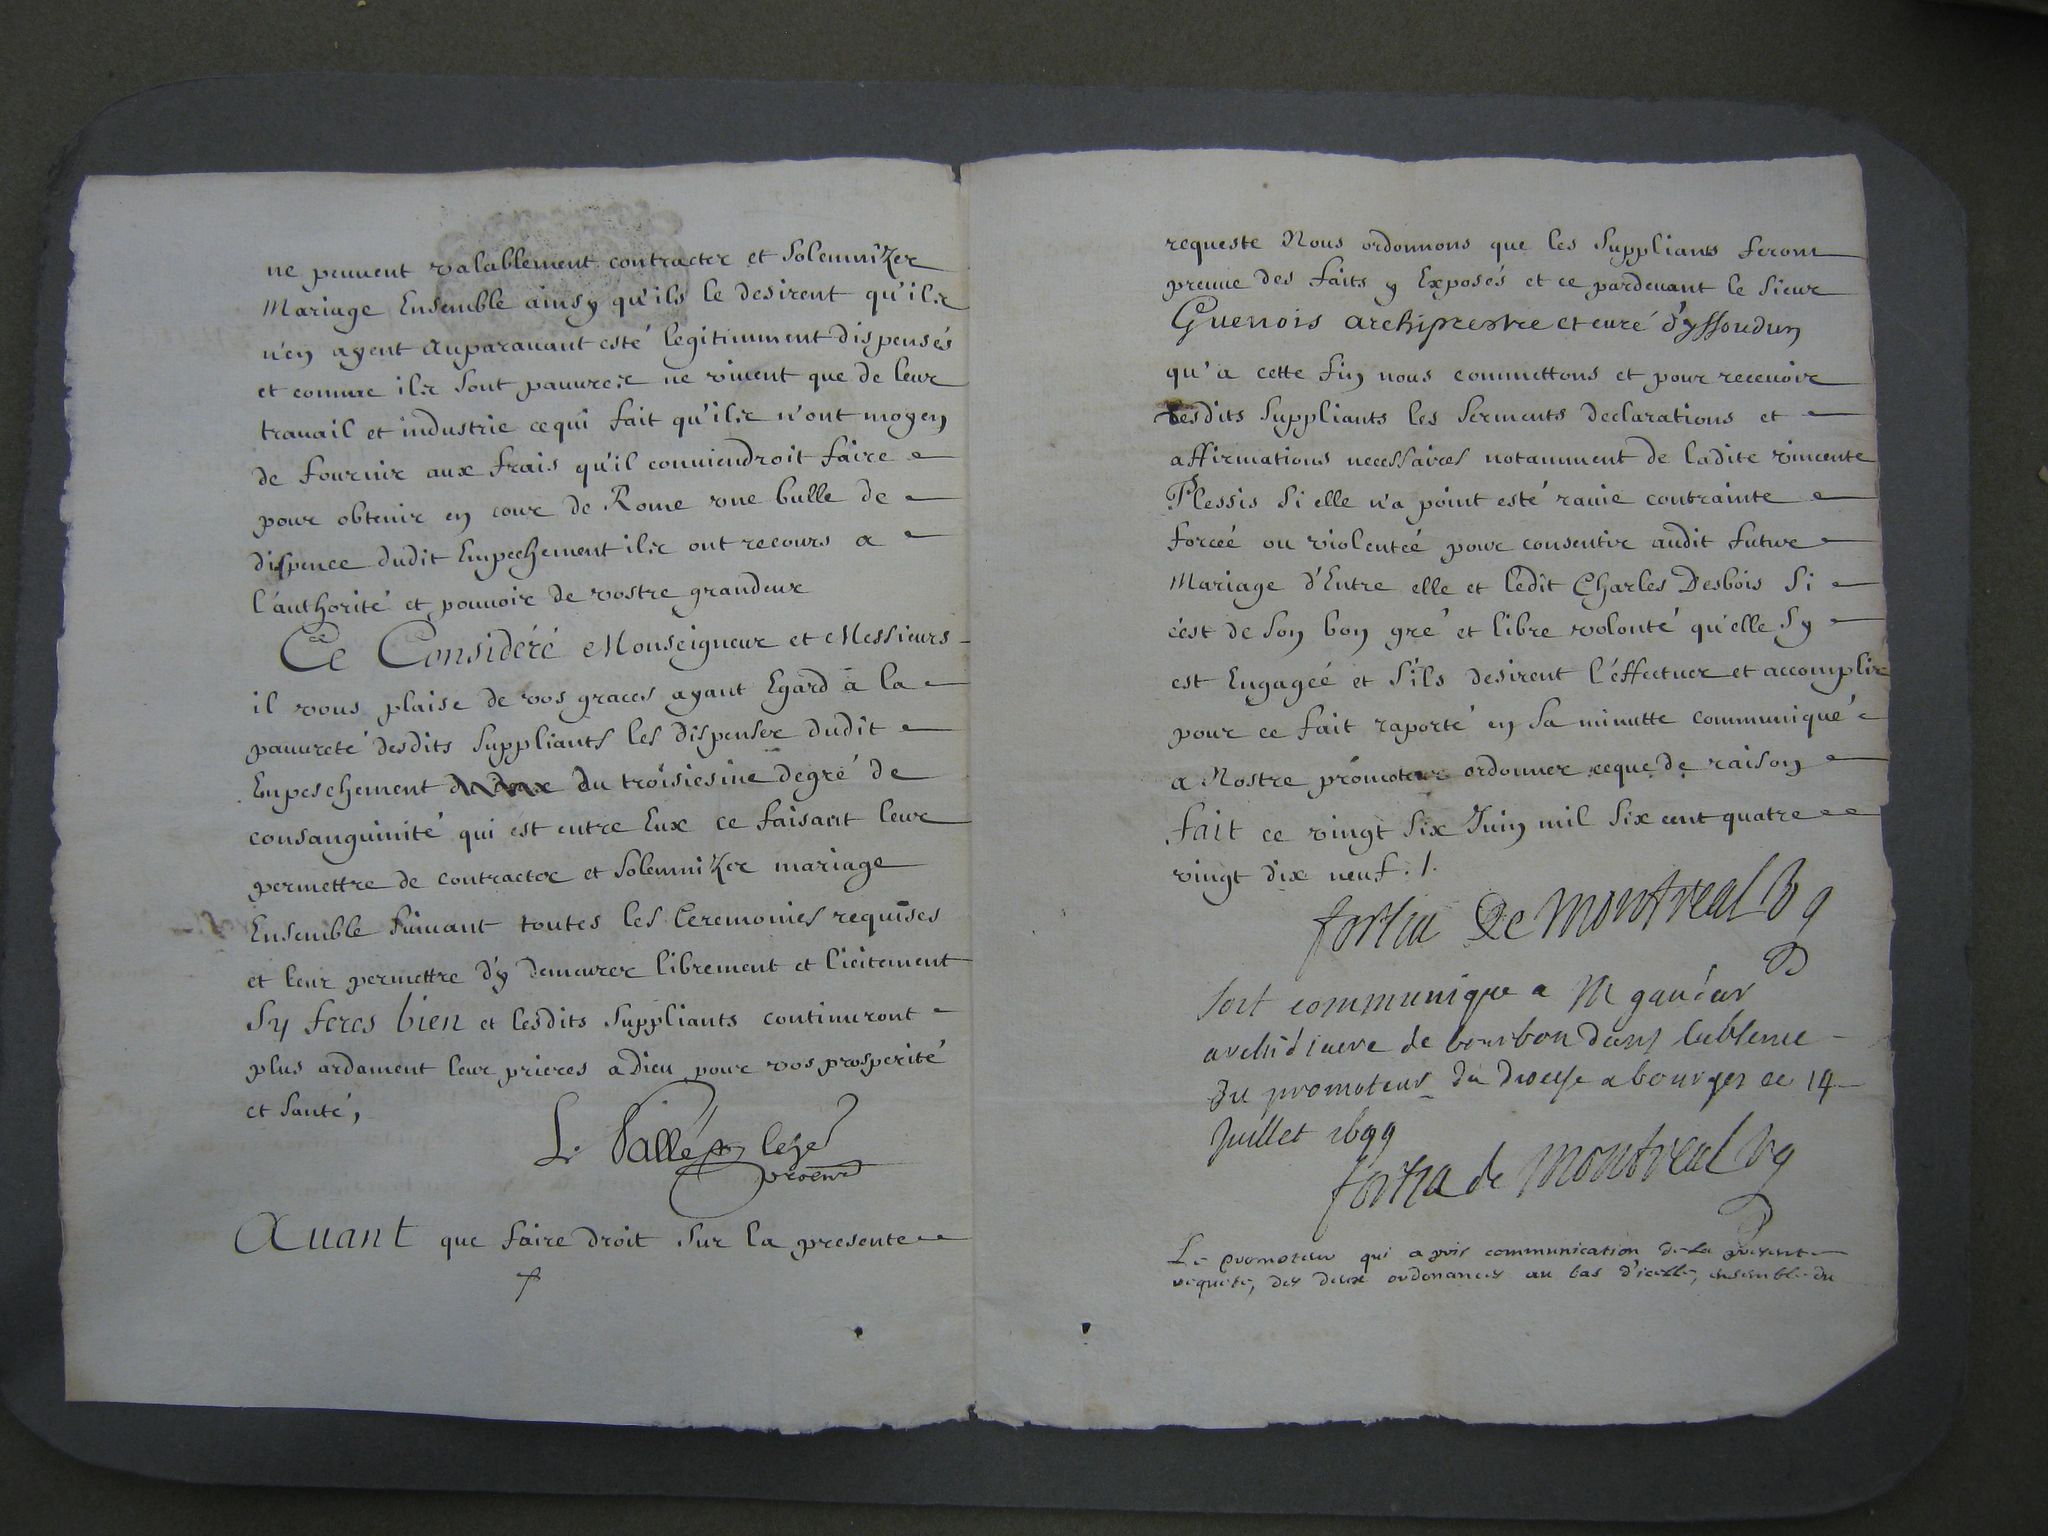 ne peuuent valablement contracter et Solemnizer
Mariage Ensemble ainsy qu'ils le desirent qu'ils
n'en ayent auparauant esté legitimment dispensés
et comme ils sont pauures ne viuent que de leur
trauail et industrie ce qui fait qu'ils n'ont moyen
de fournir aux frais qu'il conuiendroit faire
pour obtenir en cour de Rome vne bulle de
dispence dudit Empechement ils ont recours a
l'authorité et pouuoir de vostre grandeur
Ce Considéré Monseigneur et Messieurs
il vous plaise de vos graces ayant Egard à la
pauureté desdits Suppliants les dispenser dudit
Empeschement du troisiesme degré de
consanguinité qui est entre Eux ce faisant leur
permettre de contracter et Solemnizer mariage
Ensemble suiuant toutes les Ceremonies requises
et leur permettre d'y demeurer librement et licitement
Sy feres bien et lesdits Suppliants continuront
plus ardament leur prieres a dieu pour vos prosperité
et santé,
Auant que faire droit sur la presente
requeste Nous ordonnons que les Suppliants feront
preuue des faits y Exposés et ce pardeuant le sieur
Guenois archiprestre et curé d'yssoudun
qu'a cette fin nous commettons et pour receuoir
desdits Suppliants les serments declarations et
affirmations necessaires notamment de ladite vincente
Plessis si elle n'a point esté rauie contrainte
forcée ou violentée pour consentir audit futur
Mariage d'Entre elle et ledit Charles Desbois si
c'est de son bon gré et libre volonté qu'elle sy
est Engagée et s'ils desirent l'éffectuer et accomplir
pour ce fait raporté en sa minutte communiqué
a Nostre promoteur ordonner ce que de raison
fait ce vingt six Juin mil six cent quatre
vingt dix neuf. /.
fortia De Montreal vg
soit communique a M gaudar
archidiacre de bourbon dans labsence
du promoteur du diocese a bourges ce 14
Juillet 1699
fortia de Montreal vg
Le promoteur qui a pris communication de la presente
requeste, des deux ordonances au bas d'icelle, ensemble du